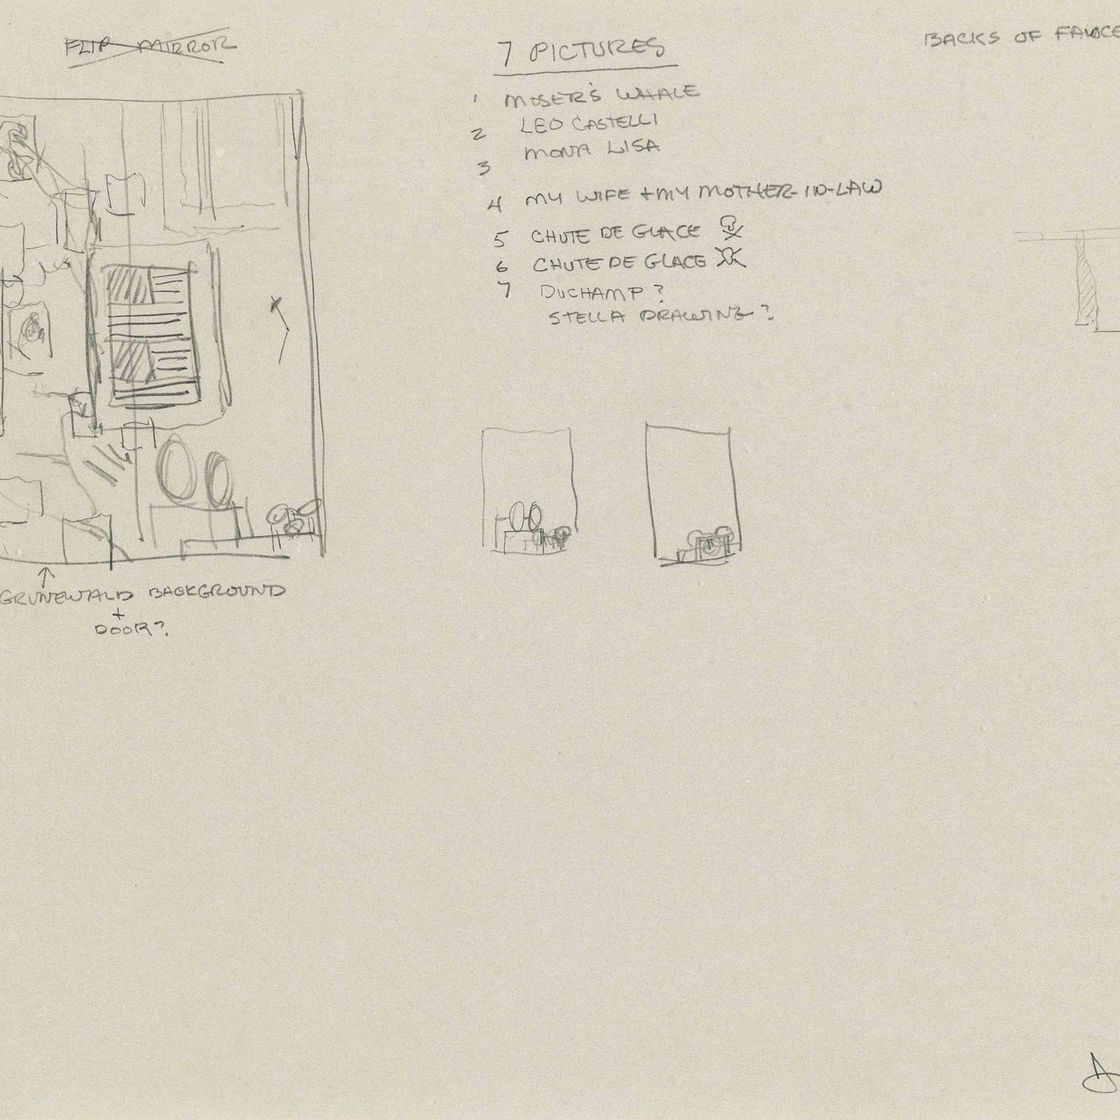 FLIP MIRROR
7 PICTURES
1 MOSER'S WHALE
2 LEO CASTELLI
3 MONA LISA
4 MY WIFE + MY MOTHER-IN-LAW
5 CHUTE DE GLACE
6 CHUTE DE GLACE
7 DUCHAMP?
STELLA DRAWING?
BACKS OF
GRUNEWALD BACKGROUND
+
DOOR?